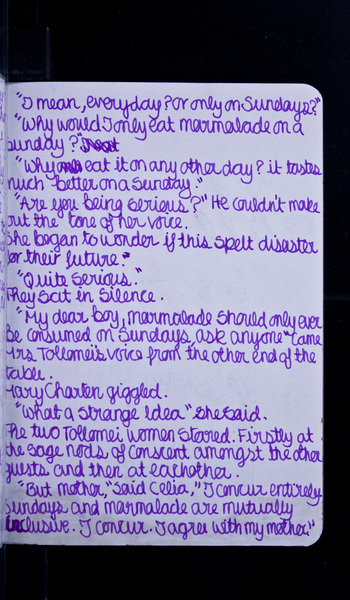 "I mean, everyday? Or only on Sundays?"
"Why would I only eat marmalade on a
Sunday?"
"Why eat it on any other day? it tastes
much better on a Sunday."
"Are you being serious?" He couldn't make
out the tone of her voice.
She began to wonder if this spelt disaster
for their future."
"Quite serious."
They sat in silence.
"My dear boy, marmalade should only ever
be consumed on Sundays, ask anyone" came
Mrs Tollomei's voice from the other end of the
table.
Mary Charlen giggled.
"What a strange idea" she said.
The two Tollomei women stared. Firstly at
the sage nods of consent amongst the other
guests and then at eachother.
"But mother," said Celia, "I concur entirely
Sundays and marmalade are mutually
inclusive. I concur. I agree with my mother."